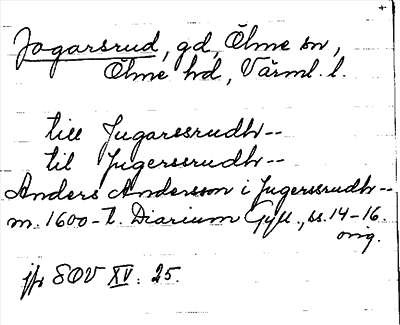 Jogarsrud, gd, Ölme sn,
Ölme hd, Värml. l.
till Jugarssrudh--
til Jugerssrudh--
Anders Andersson i Jugerssrudh--
m. 1600-t. Diarium Gyll., ss. 14-16.
orig.
jfr SOV XV: 25.